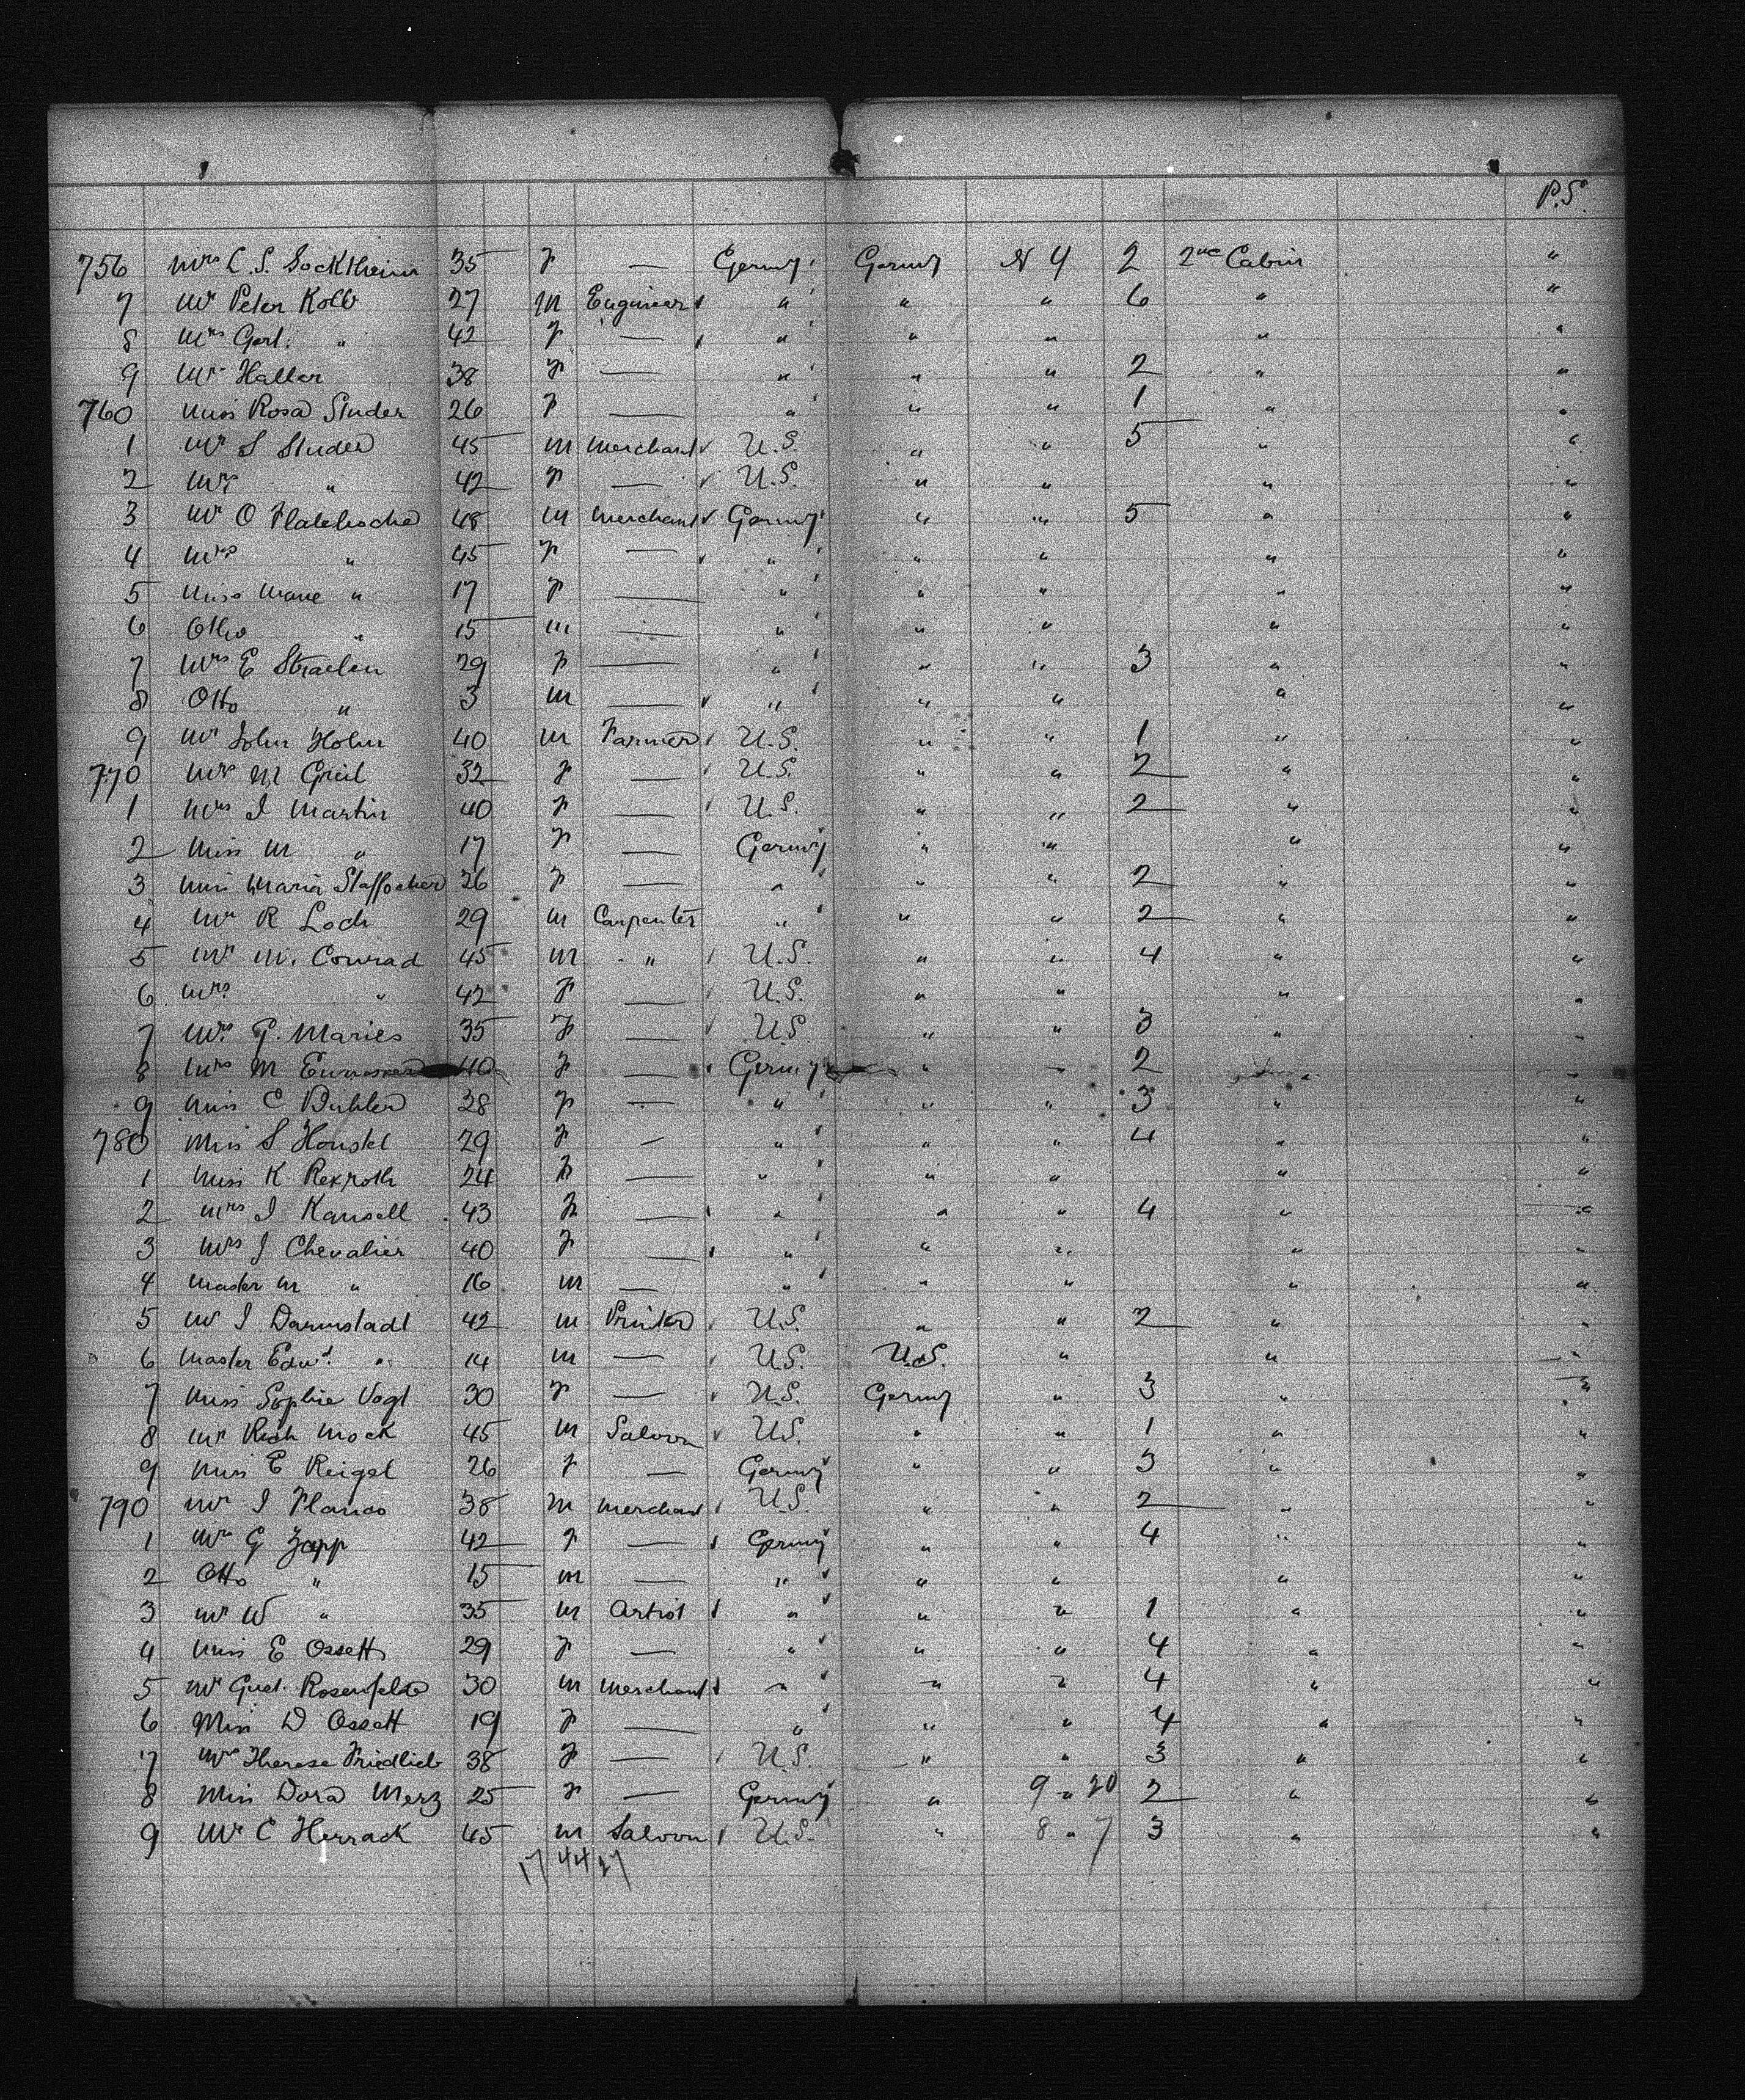 P.S.
756 Mrs L. S. Socktheim 35 F — Germy Germy N Y 2 2nd Cabin "
7 Mr Peter Kolb 27 M Engineer " " " 6 " "
8 Mrs Gert. " 42 F — " " " " "
9 Mrs Haller 38 F — " " " 2 " "
760 Miss Rosa Studer 26 F — " " " 1 " "
1 Mr S Studer 45 M Merchant U.S. " " 5 " "
2 Mrs " 42 F — U.S. " " " "
3 Mr O 48 M Merchant Germy " " 5 " "
4 Mrs " 45 F — " " " " "
5 Miss Marie " 17 F — " " " " "
6 Otho " 15 M — " " " " "
7 Mrs E Straelen 29 F — " " " 3 " "
8 Otto " 3 M — " " " " "
9 Mr John Hohn 40 M Farmer U.S. " " 1 " "
770 Mrs M Greil 32 F — U.S. " " 2 " "
1 Mrs J Martin 40 F — U.S. " " 2 " "
2 Miss M " 17 F — Germy " " " "
3 Miss Maria 26 F — " " " 2 " "
4 Mr R Loch 29 M Carpenter " " " 2 " "
5 Mr M. Conrad 45 M " U.S. " " 4 " "
6 Mrs " 42 F — U.S. " " " "
7 Mrs P. Maries 35 F — U.S. " " 3 " "
8 Mrs M 40 F — Germy " " 2 " "
9 Miss C Buhler 28 F — " " " 3 " "
780 Miss S Houstel 29 F — " " " 4 " "
1 Miss K Rexroth 24 F — " " " " "
2 Mrs J Kansell 43 F — " " " 4 " "
3 Mrs J Chevalier 40 F — " " " " "
4 Master M " 16 M — " " " " "
5 Mr J Darmstadt 42 M Printer U.S. " " 2 " "
6 Master Edwd. " 14 M — U.S. U.S. " " "
7 Miss Sophie Vogt 30 F — U.S. Germy " 3 " "
8 Mr Rich Mock 45 M Saloon U.S. " " 1 " "
9 Miss E Reigel 26 F — Germy " " 3 " "
790 Mr J 38 M Merchant U.S. " " 2 " "
1 Mrs G Zapp 42 F — Germy " " 4 " "
2 Otto " 15 M — " " " " "
3 Mr W " 35 M Artist " " " 1 " "
4 Miss E Ossett 29 F — " " " 4 " "
5 Mr Gust. Rosenfeld 30 M Merchant " " " 4 " "
6 Miss D Ossett 19 F — " " " 4 " "
7 Mrs Therese Friedlieb 38 F — U.S. " " 3 " "
8 Miss Dora Merz 25 F — Germy " 9 " 20 2 " "
9 Mr C Herrack 45 M Saloon U.S. " 8 " 7 3 " "
17 44 27